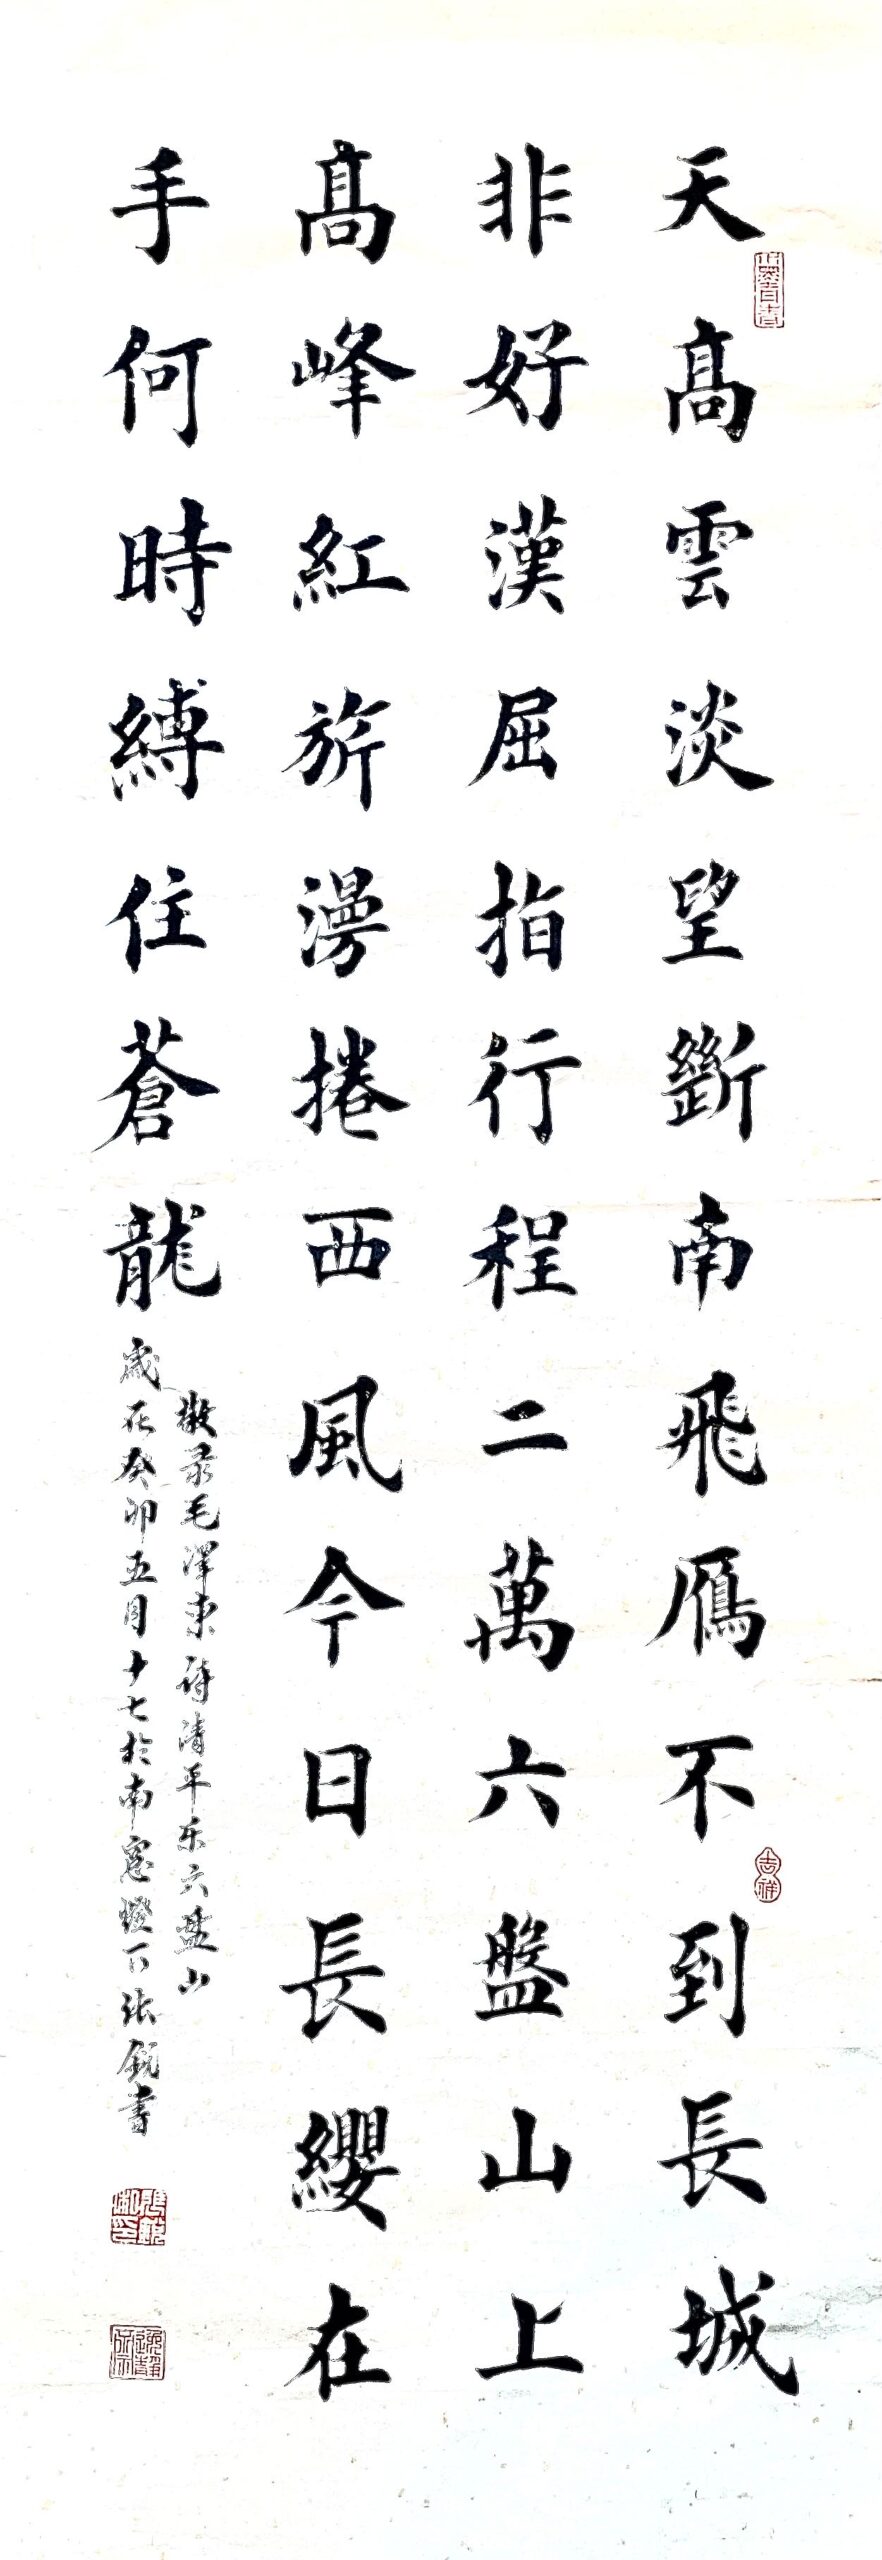 天高雲淡望斷南飛鴈不到長城
非好漢屈指行程二萬六盤山上
高峰紅旂漫捲西風今日長纓在
手何時縛住蒼龍
敬录毛澤東詩清平乐六盘山
歲在癸卯五月十七於南窗燈下张銳書
吉祥